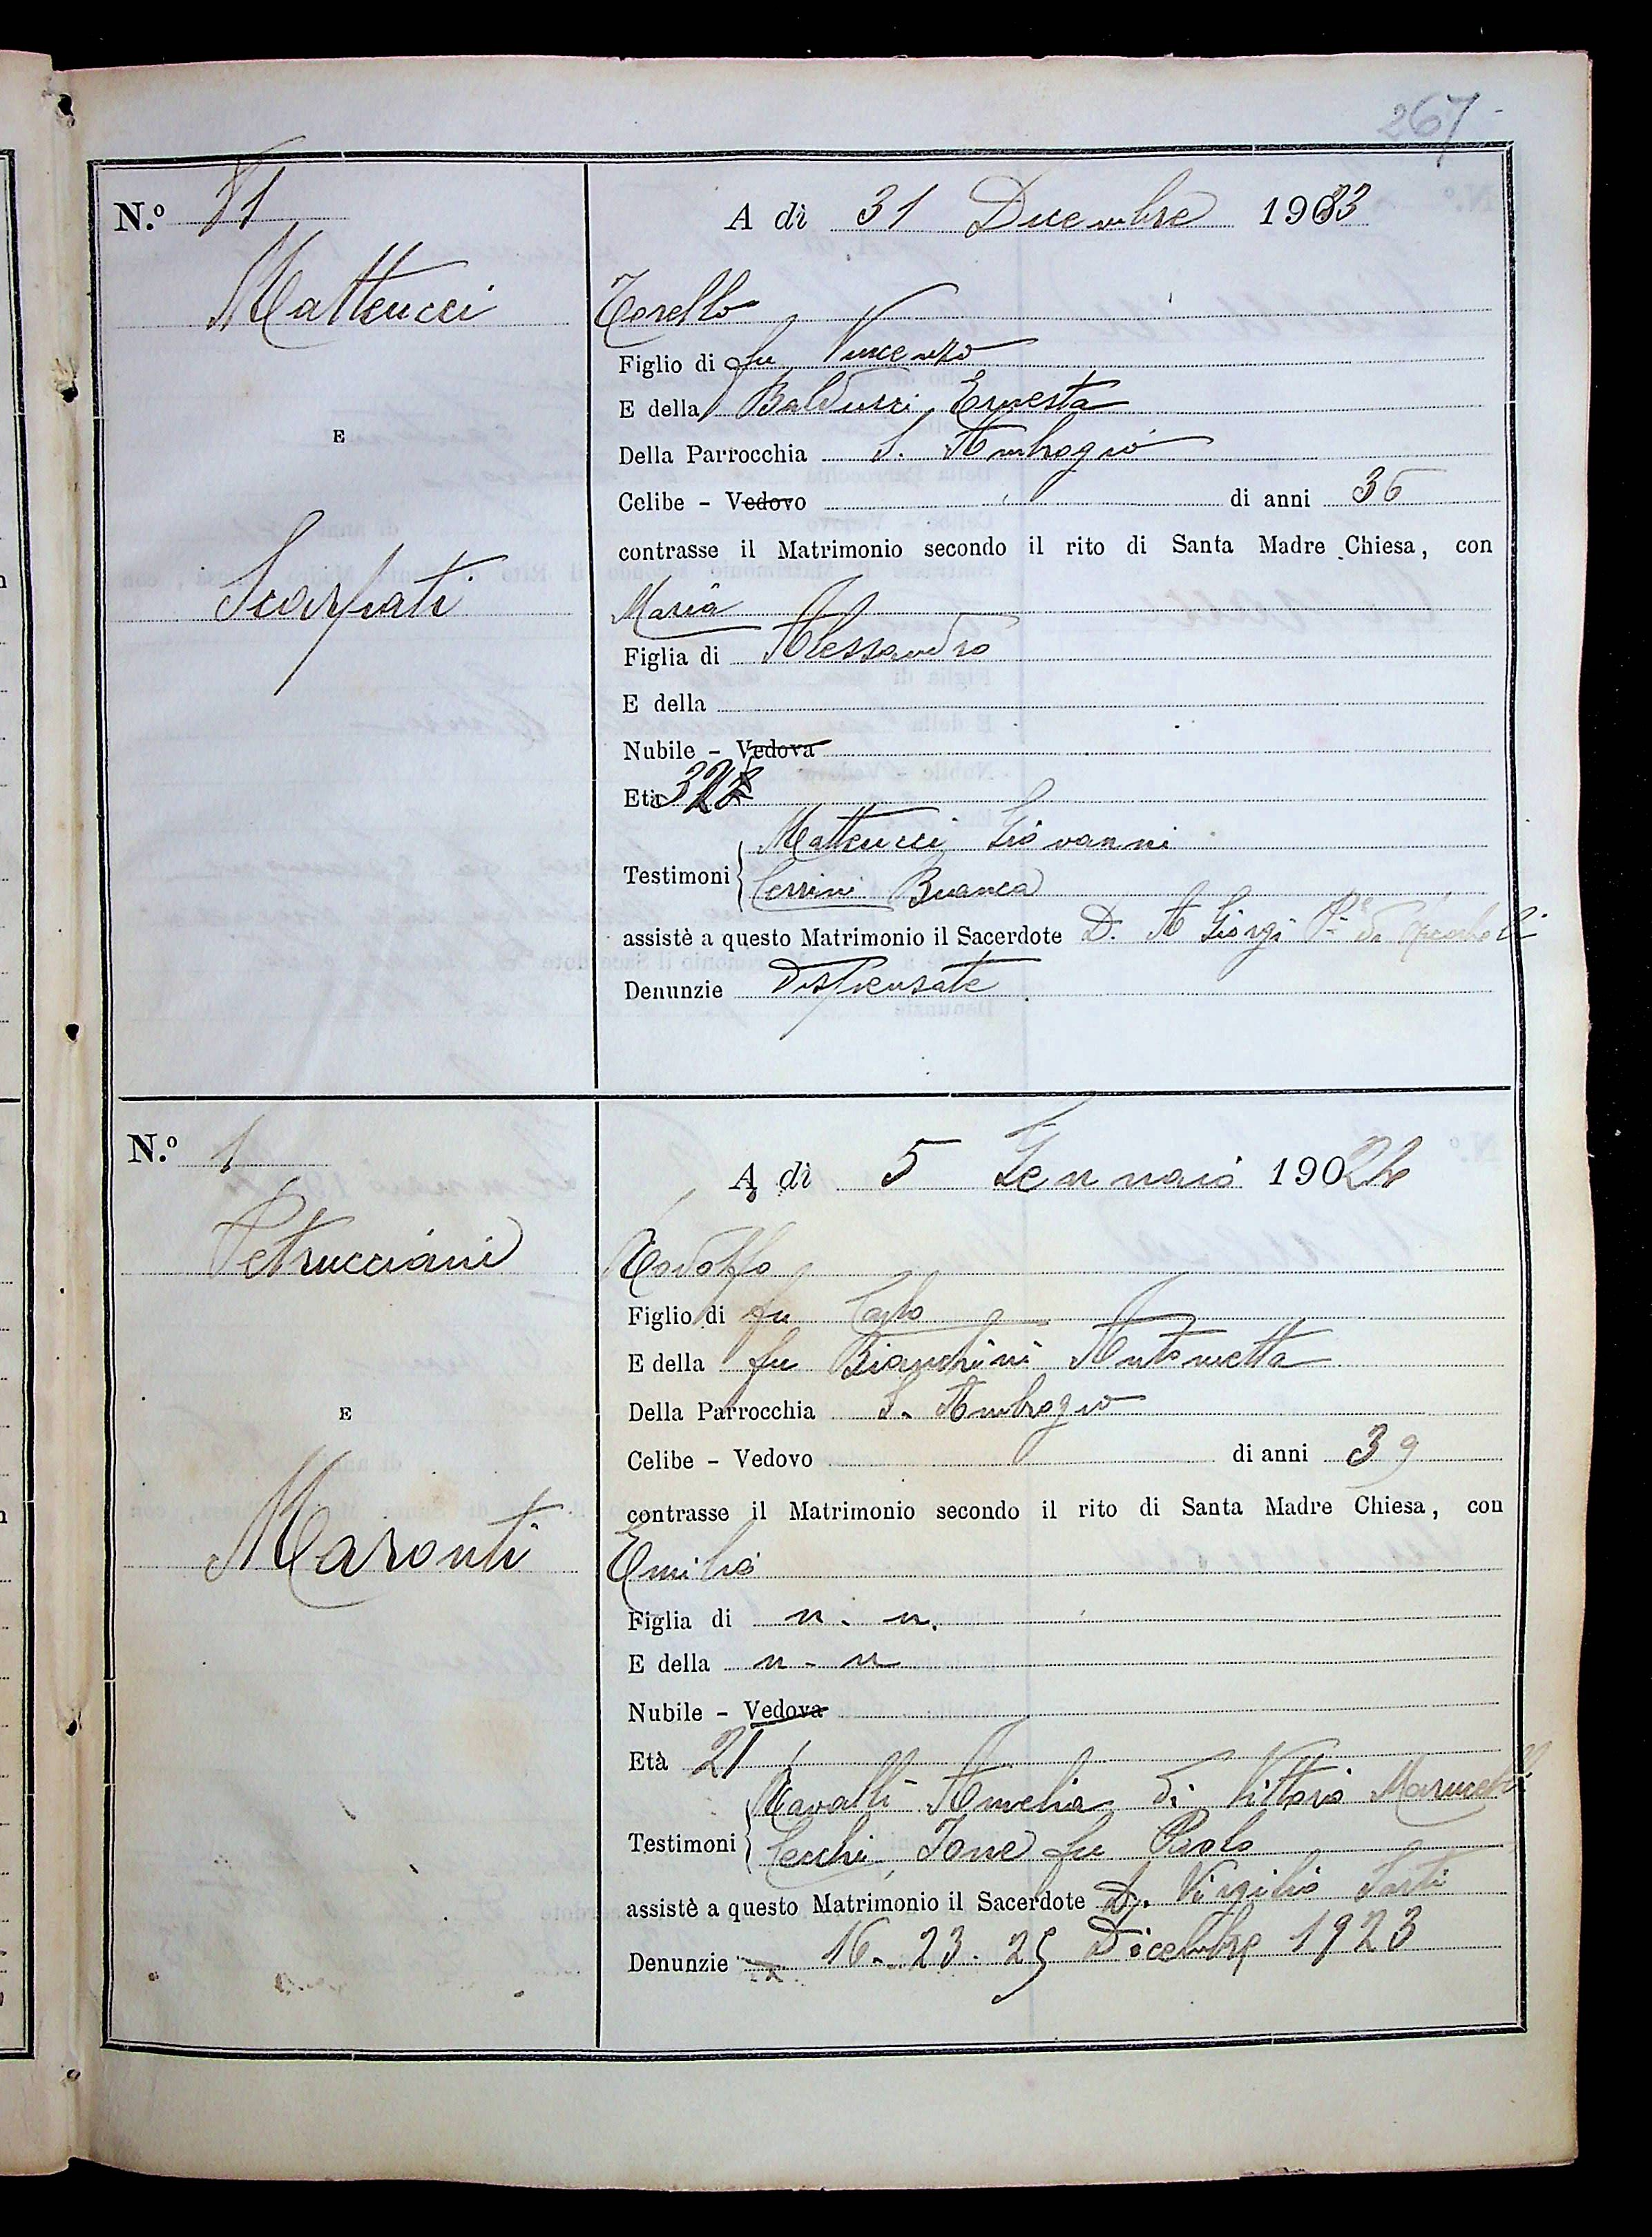 267
N.º 81
A dì 31 Dicembre 1923
Matteucci
Torello
Figlio di fu Vincenzo
E della Balduzzi Ernesta
E
Della Parrocchia S. Ambrogio
Celibe - Vedovo di anni 36
contrasse il Matrimonio secondo il rito di Santa Madre Chiesa, con
Scarpati
Maria
Figlia di Alessandro
E della
Nubile - Vedova
Età 32
Matteucci Giovanni
Testimoni
Cerrini Bianca
assistè a questo Matrimonio il Sacerdote D. A Giorgi
Denunzie Dispensate
N.º 1
A dì 5 Gennaio 1924
Petrucciani
Rodolfo
Figlio di fu Carlo
E della fu Bianchini Antonietta
Della Parrocchia S. Ambrogio
E
Celibe - Vedovo di anni 39
contrasse il Matrimonio secondo il rito di Santa Madre Chiesa, con
Maronti
Emilia
Figlia di n. n.
E della n. n
Nubile - Vedova
Età 21
Ravalli Amelia di Vittorio
Testimoni
Cecchi Ione fu Paolo
assistè a questo Matrimonio il Sacerdote D. Virgilio Sarti
Denunzie 16. 23. 25 Dicembre 1923